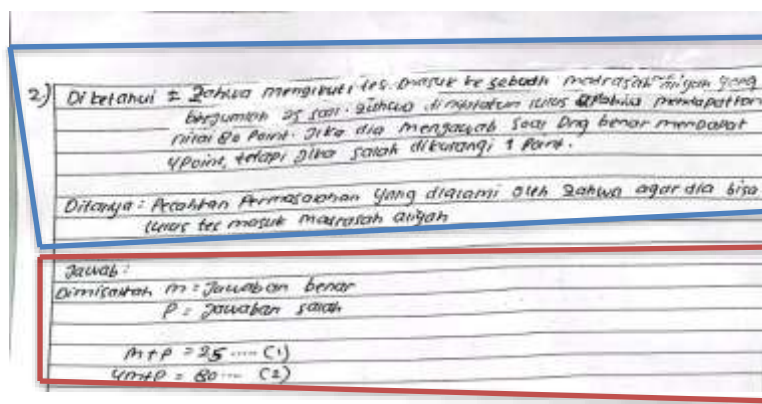 2) Diketahui : Zahwa mengikuti tes masuk ke sebuah madrasah aliyah yang
berjumlah 25 soal. Zahwa dinyatakan lulus apabila mendapatkan
nilai 80 Point. Jika dia menjawab soal Dng benar mendapat
4 Point, tetapi jika salah dikurangi 1 Point.
Ditanya : Pecahkan Permasalahan yang dialami oleh Zahwa agar dia bisa
lulus tes masuk madrasah aliyah
Jawab :
Dimisalkan m = Jawaban benar
P = Jawaban salah
m+P = 25 .... (1)
4m+P = 80 ... (2)